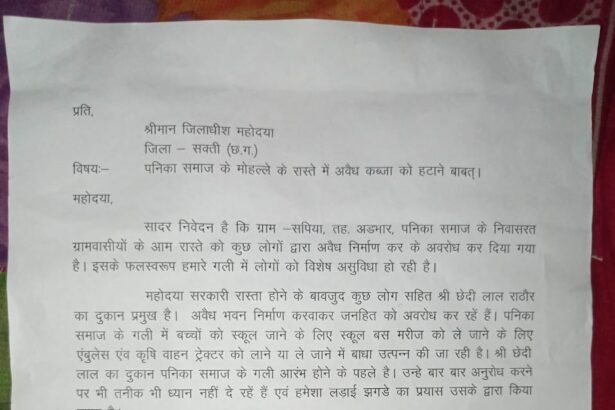 प्रति,
श्रीमान जिलाधीश महोदया
जिला – सक्ती (छ.ग.)
विषयः– पनिका समाज के मोहल्ले के रास्ते में अवैध कब्जा को हटाने बाबत्।
महोदया,
सादर निवेदन है कि ग्राम –सपिया, तह. अडभार, पनिका समाज के निवासरत
ग्रामवासीयों के आम रास्ते को कुछ लोगों द्वारा अवैध निर्माण कर के अवरोध कर दिया गया
है। इसके फलस्वरूप हमारे गली में लोगों को विशेष असुविधा हो रही है।
महोदया सरकारी रास्ता होने के बावजुद कुछ लोग सहित श्री छेदी लाल राठौर
का दुकान प्रमुख है। अवैध भवन निर्माण करवाकर जनहित को अवरोध कर रहें हैं। पनिका
समाज के गली में बच्चों को स्कूल जाने के लिए स्कूल बस मरीज को ले जाने के लिए
एंबुलेस एंव कृषि वाहन ट्रेक्टर को लाने या ले जाने में बाधा उत्पन्न की जा रही है। श्री छेदी
लाल का दुकान पनिका समाज के गली आरंभ होने के पहले है। उन्हे बार बार अनुरोध करने
पर भी तनीक भी ध्यान नहीं दे रहें हैं एवं हमेशा लड़ाई झगडे का प्रयास उसके द्वारा किया